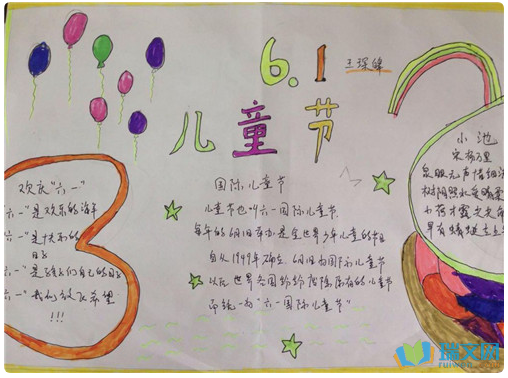 6.1
儿童节
欢庆"六一"
六一"是欢乐的海洋
六一"是快乐的
日子
六一"是我们自己的日子
六一"我们放飞希望
!!!
国际儿童节
儿童节也叫六一国际儿童节,
每年的6月1日举办是全世界少年儿童的节日
自从1949年确立6月1日为国际儿童节
以后世界各国纷纷废除原有的儿童节
而统一为"六一国际儿童节"
小池
宋 杨万里
泉眼无声惜细流
树阴照水爱晴柔
小荷才露尖尖角
早有蜻蜓立上
瑞文网